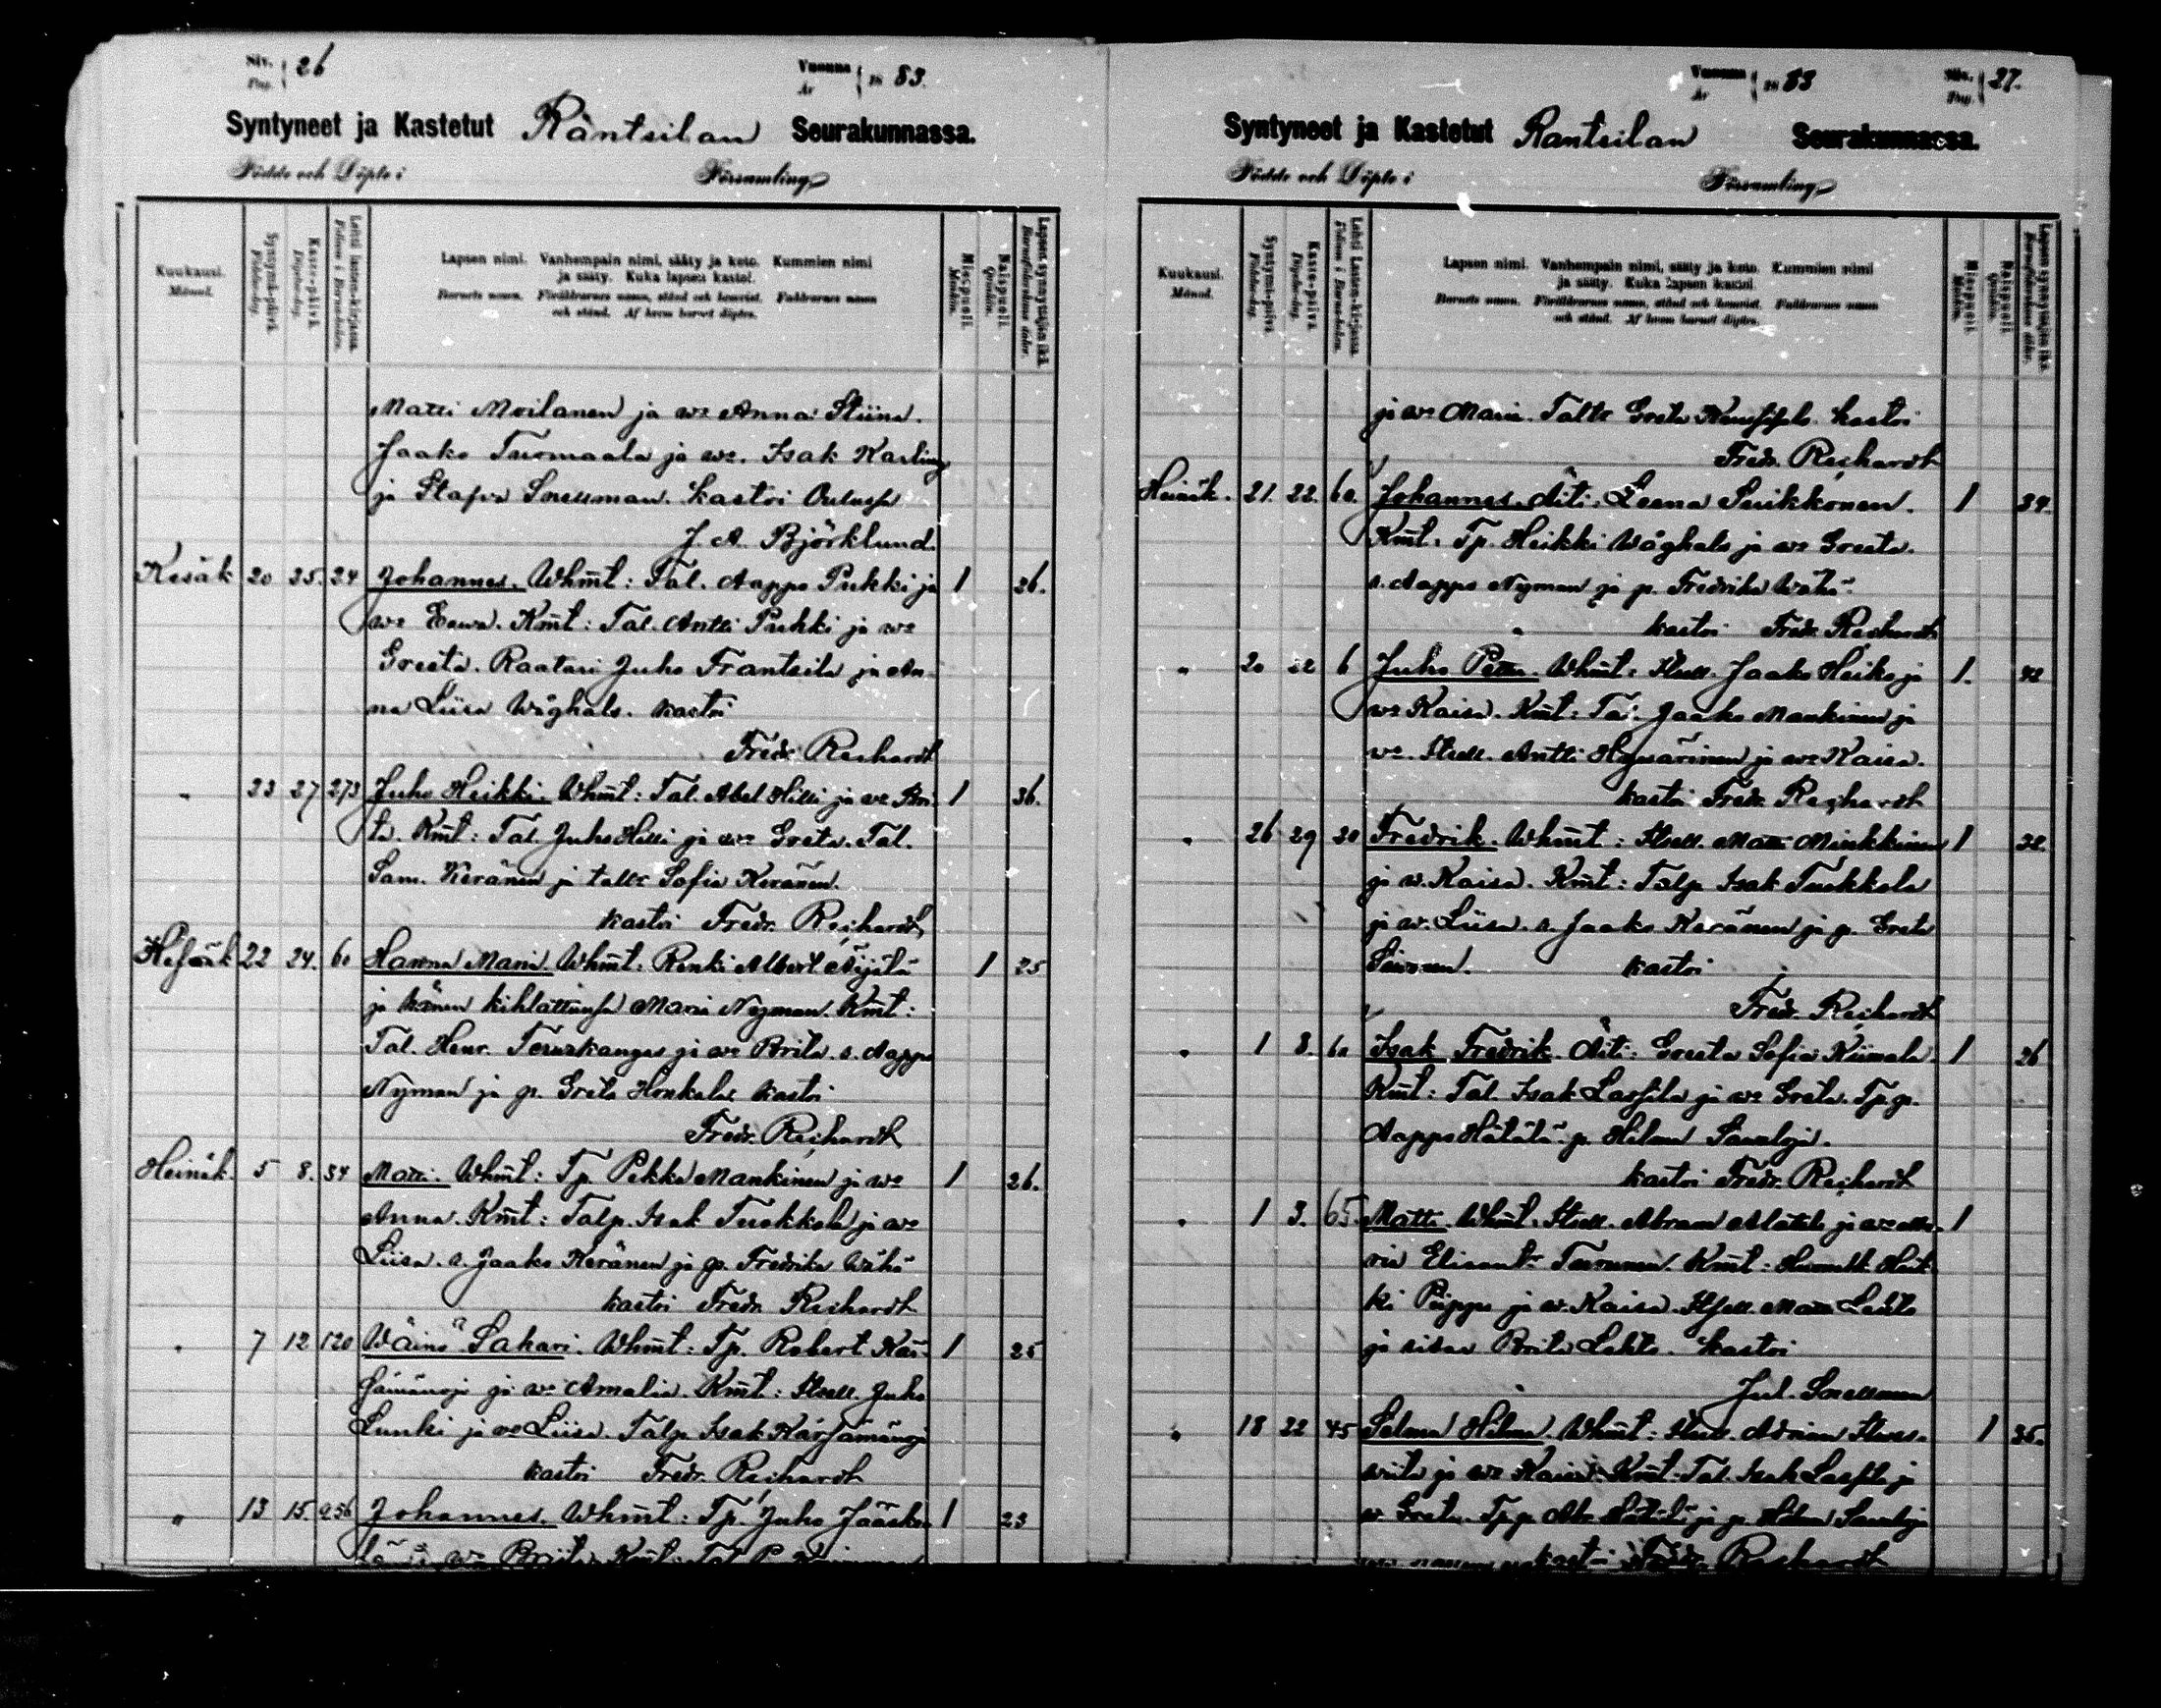 Siv. 26
Pag.
Vuonna 18 83.
År
Syntyneet ja Kastetut Räntsilan Seurakunnassa.
Födde och Döpte i Församling
Kuukausi.
Månad.
Syntymä-päivä.
Födelse-dag.
Kaste-päivä.
Döpelse-dag.
Lehti lasten-kirjassa.
Folium i Barna-boken.
Lapsen nimi. Vanhempain nimi, sääty ja koto. Kummien nimi
ja sääty. Kuka lapsen kastoi.
Barnets namn. Föräldrarnes namn, stånd och hemvist. Faddrarnes namn
och stånd. Af hvem barnet döptes.
Miespuoli.
Mankön.
Naispuoli.
Qvinkön.
Lapsen synnyttäjän ikä.
Barnaföderskans ålder.
Matti Moilanen ja wo Anna Stiina.
Jaako Tuomaala ja wo. Isak Karling
ja Stafva Snellman. Kastoi Oulussa
J. A. Björklund.
Kesäk 20 25. 24 Johannes. Whmt: Tal. Aappo Pukki ja 1 26.
wo Eewa. Kmt: Tal. Antti Pukki ja wo
Greeta. Raatari Juho Frantsila ja An-
na Liisa Wåghals. kastoi
Fredr. Reichardt
" 23 27 273 Juho Heikki. Whmt: Tal. Abel Hilli ja wo Bri- 1 36.
ta. Kmt: Tal. Juho Hilli ja wo Greta. Tal.
Sam. Keränen ja taltr Sofia Keränen.
kastoi Fredr. Reichardt
22 24. 60 Hanna Maria. Whmt: Renki Albert Äijälä 1 25
ja hänen kihlattunsa Maria Nyman. Kmt:
Tal. Henr. Terwakangas ja wo Brita. s. Aappo
Nyman ja p. Greta Honkala kastoi
Fredr. Reichardt
Heinäk. 5 8. 34 Matti. Whmt: Tp. Pekka Mankinen ja wo 1 26.
Anna. Kmt: Talp. Isak Tuokkola ja wo
Liisa. s. Jaako Keränen ja p. Fredrika Wähä
kastoi Fredr. Reichardt
" 7 12 120 Wäinö Sakari. Whmt: Tp. Robert Kär- 1 25
sämänoja ja wo Amalia. Kmt: Itsell. Juho
Lunki ja wo Liisa. Talp. Isak Kärsämänoja
kastoi Fredr. Reichardt
" 13 15. 256 Johannes. Whmt: Tp. Juho Jääske- 1 23
wo Brita. Kmt: Tal. P.
Vuonna 18 83
År
Siv. 27.
Pag.
Syntyneet ja Kastetut Rantsilan Seurakunnassa.
Födde och Döpte i Församling
Kuukausi.
Månad.
Syntymä-päivä.
Födelse-dag.
Kaste-päivä.
Döpelse-dag.
Lehti Lasten-kirjassa.
Folium i Barna-boken.
Lapsen nimi. Vanhempain nimi, sääty ja koto. Kummien nimi
ja sääty. Kuka lapsen kastoi.
Barnets namn. Föräldrarnes namn, stånd och hemvist. Faddrarnes namn
och stånd. Af hvem barnet döptes.
Miespuoli.
Mankön.
Naispuoli.
Qvinkön.
Lapsen synnyttäjän ikä.
Barnaföderskans ålder.
ja wo Maria. Taltr Greta kastoi
Fredr. Reichardt
Heinäk. 21. 22. 60. Johannes. Äiti: Leena Suikkonen. 1 34.
Kmt. Tp. Heikki Wåghals ja wo Greeta.
s. Aappo Nyman ja p. Fredrika Wähä.
kastoi Fredr. Reichardt
" 20 22 6 Juho Petter. Whmt: Itsell. Jaako Heiko ja 1. 42
wo Kaisa. Kmt: Tal. Jaako Mankinen ja
wo. Itsell. Antti Hapsärinen ja wo Kaisa.
kastoi Fredr. Reichardt
" 26 29 30 Fredrik. Whmt: Itsell. Matti Minkkinen 1 32.
ja w. Kaisa. Kmt: Talp. Isak Tuokkola
ja w. Liisa. s. Jaako Keränen ja p. Greta
Siironen. kastoi
Fredr. Reichardt
" 1 8. 60 Isak Fredrik. Äiti: Greeta Sofia Kiimala. 1 26
Kmt: Tal. Isak Lassila ja wo Greta. Tp.p.
Aappo Hätälä. p. Hilma
kastoi Fredr. Reichardt
" 1 3. 65. Matti. Whmt. Itsell. Abram Alatalo ja wo Ma- 1
ria Elisant Kmt: Heik-
ki Piippo ja w. Kaisa. Itsell. Matti Lehto
ja sisar Brita Lehto. kastoi
Jul. Snellman
" 18 22 45 Selma Hilma. Whmt: Adrian 1 35.
ja wo Kaisa. Kmt: Tal. Isak Lassila ja
w Greta. Tp.p. Ab. Hätälä ja p. Hilma
kastoi Fredr. Reichardt